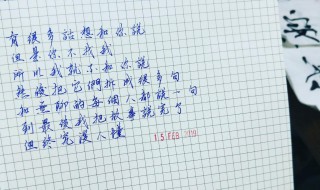 有很多話想和你說
但是你不找我
所以我就不和你說
然後把它們拆成很多句
和無聊的每個人都說一句
到最後我把故事說完了
但終究沒人懂
15 FEB